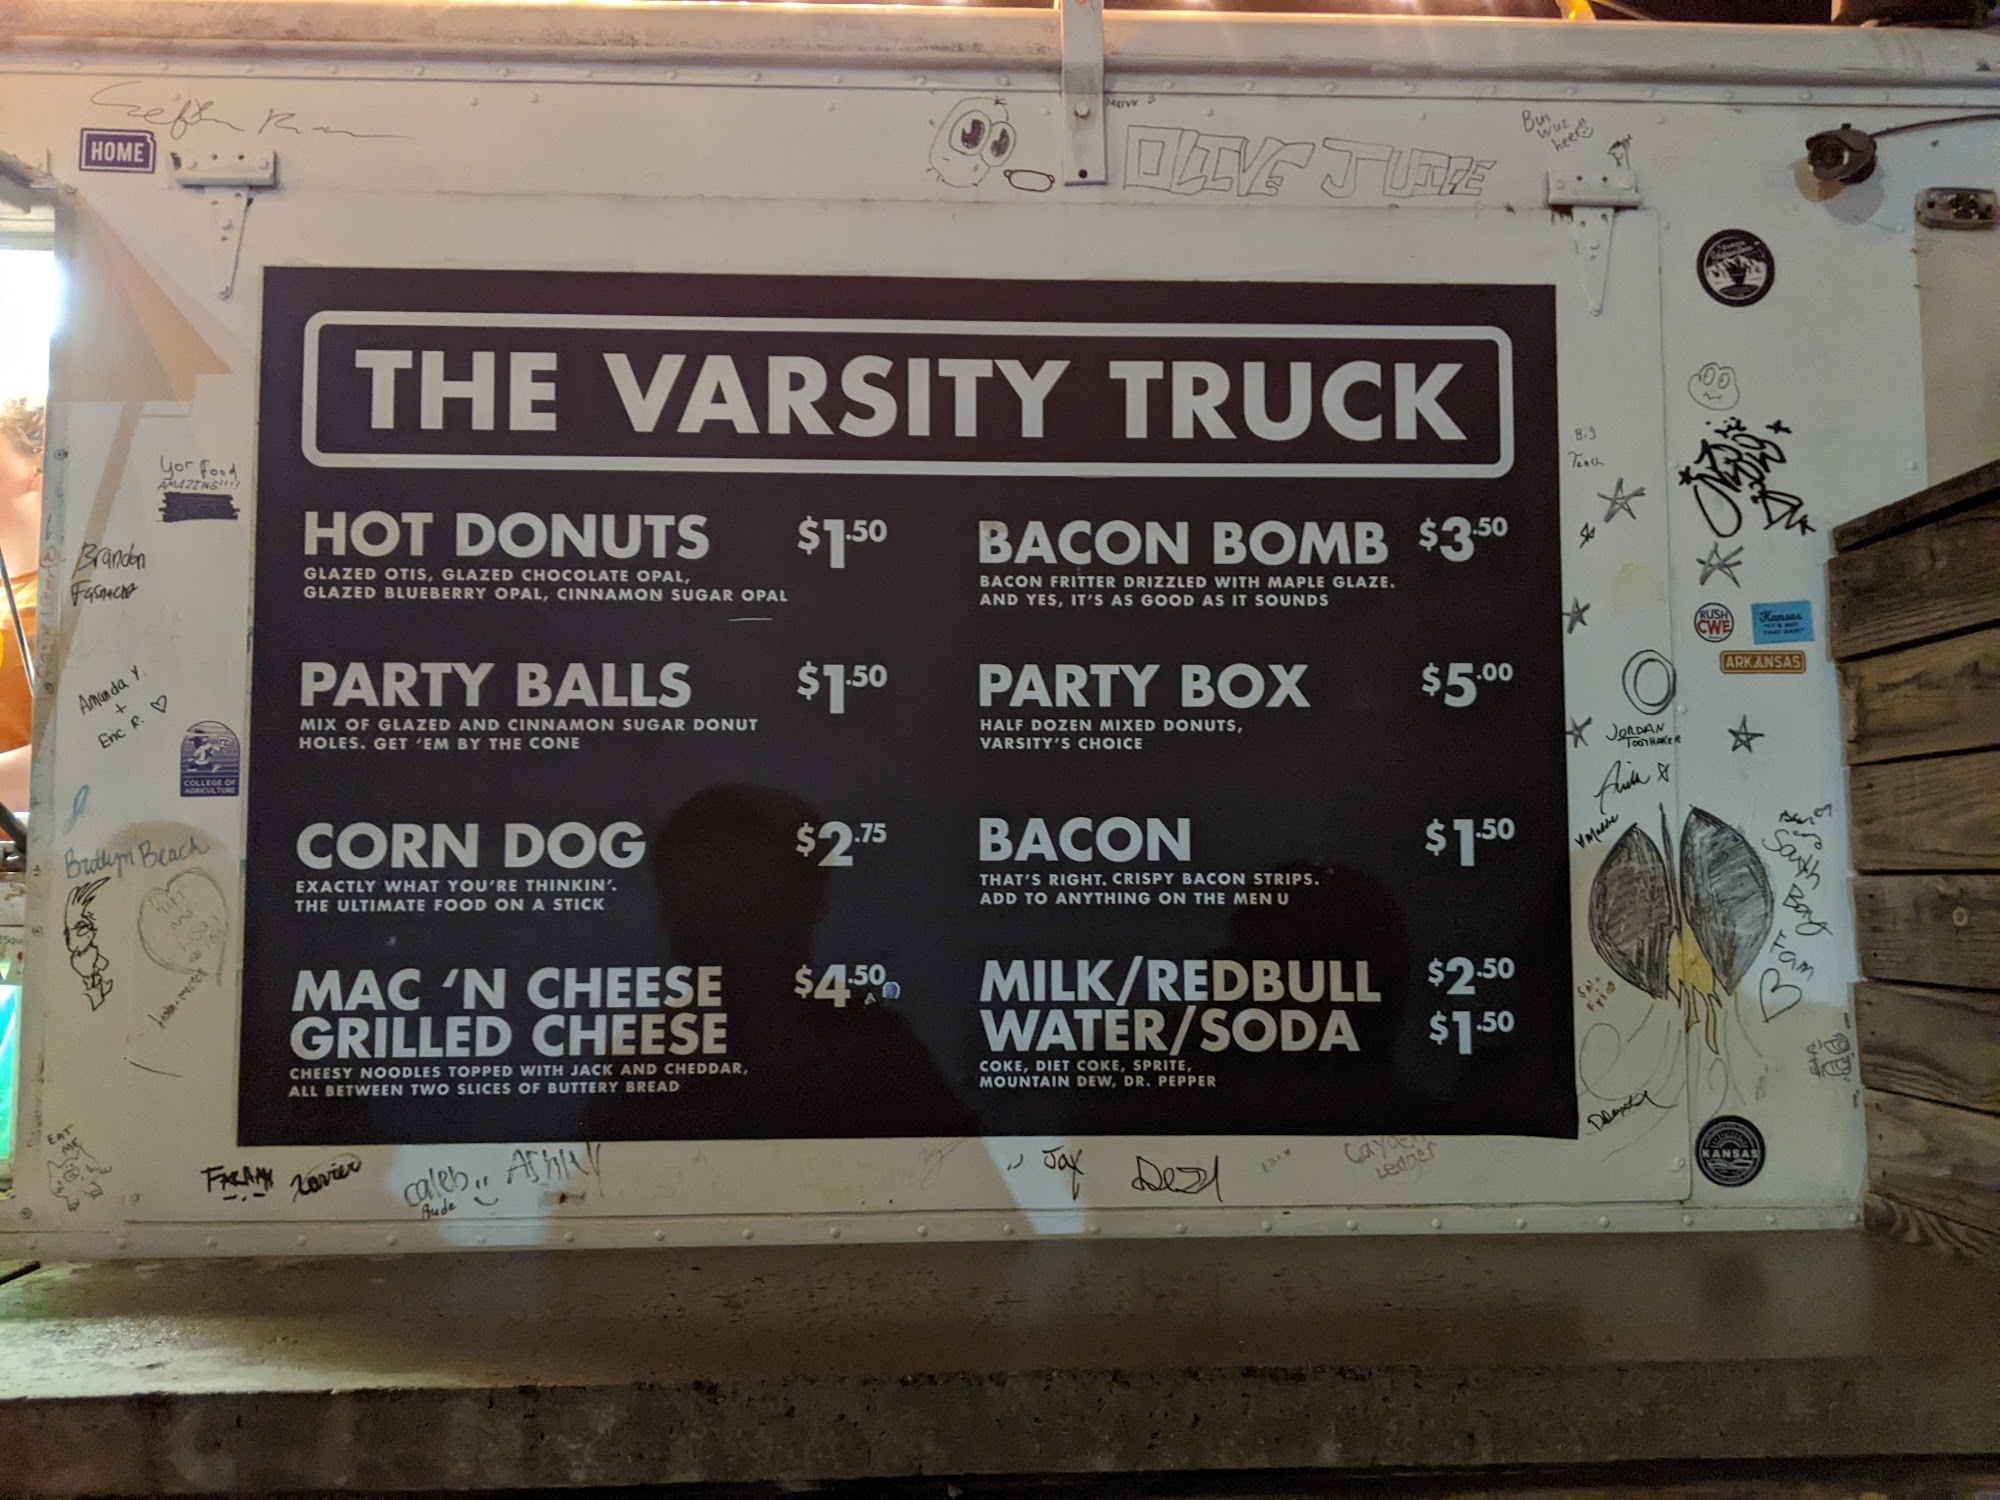 HOME
OLIVE JUICE
Bus
wuz
here
THE VARSITY TRUCK
Yor Food
AMAZING!!!!
Branden
HOT DONUTS $1.50
GLAZED OTIS, GLAZED CHOCOLATE OPAL,
GLAZED BLUEBERRY OPAL, CINNAMON SUGAR OPAL
PARTY BALLS $1.50
MIX OF GLAZED AND CINNAMON SUGAR DONUT
HOLES. GET 'EM BY THE CONE
CORN DOG $2.75
EXACTLY WHAT YOU'RE THINKIN'.
THE ULTIMATE FOOD ON A STICK
MAC 'N CHEESE $4.50
GRILLED CHEESE
CHEESY NOODLES TOPPED WITH JACK AND CHEDDAR,
ALL BETWEEN TWO SLICES OF BUTTERY BREAD
BACON BOMB $3.50
BACON FRITTER DRIZZLED WITH MAPLE GLAZE.
AND YES, IT'S AS GOOD AS IT SOUNDS
PARTY BOX $5.00
HALF DOZEN MIXED DONUTS,
VARSITY'S CHOICE
BACON $1.50
THAT'S RIGHT. CRISPY BACON STRIPS.
ADD TO ANYTHING ON THE MENU
MILK/REDBULL $2.50
WATER/SODA $1.50
COKE, DIET COKE, SPRITE,
MOUNTAIN DEW, DR. PEPPER
Amanda Y.
+
Eric R.
COLLEGE OF
AGRICULTURE
Brooklyn Beach
EAT
ME
FARAHH
Xavier
Caleb
Bude
ASHLEY
Jax
Cayden
Ledger
Big
RUSH
CWE
Kansas
"IT'S NOT
THAT BAD!"
ARKANSAS
JORDAN
TOOTHAKER
Maddie
South
Bay
Fam
KANSAS